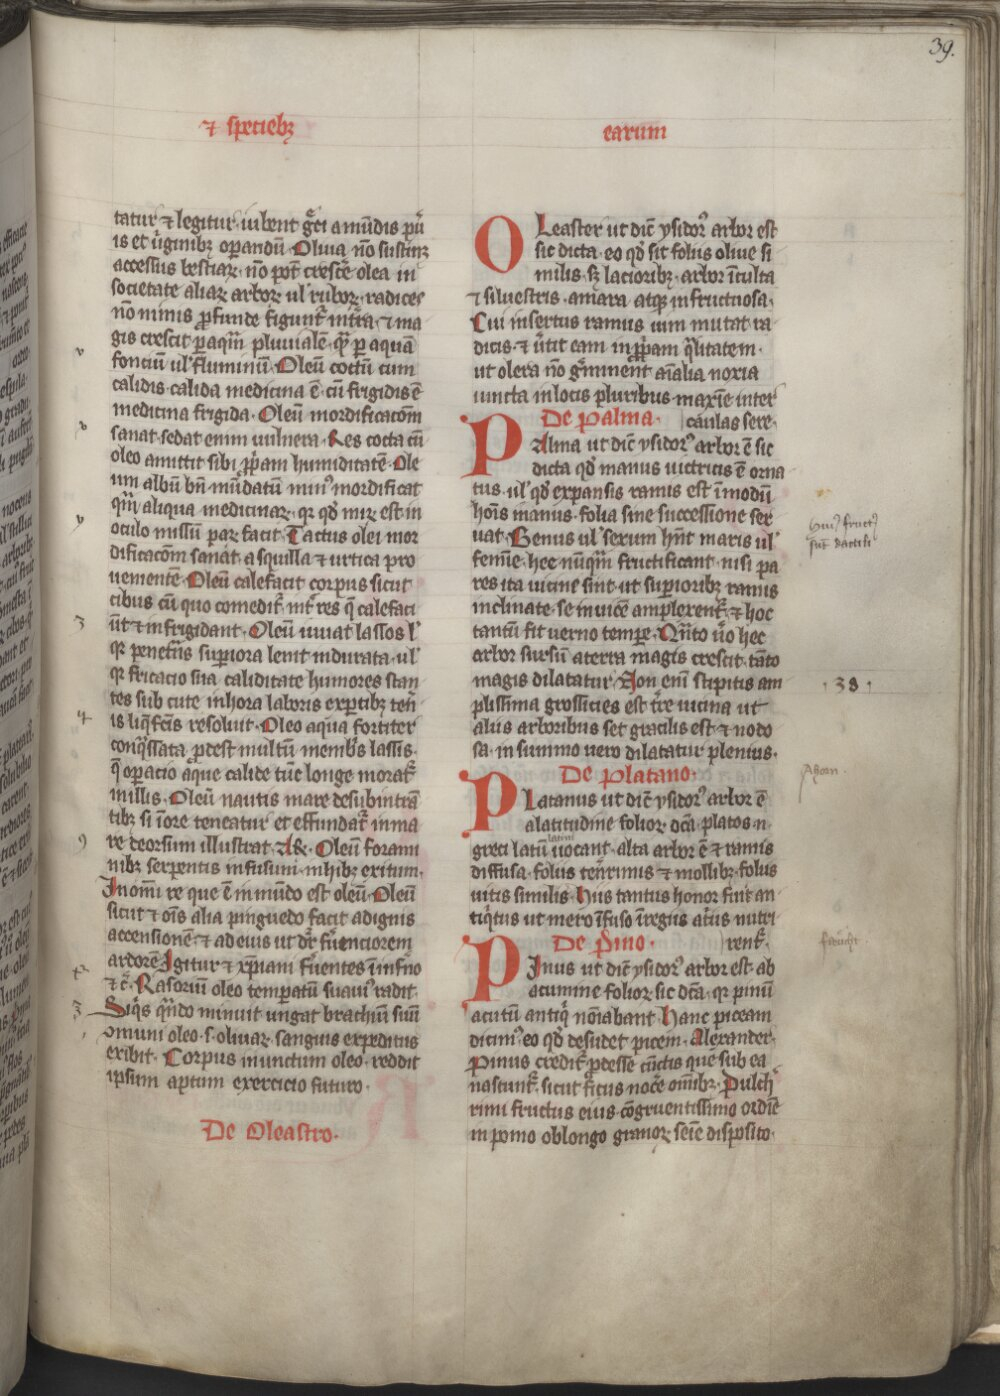 39.
⁊ speciebꝫ
earum
tatur ⁊ legitur iubent g̾ci a mūdis pu̾
is et u̾ginibꝫ operandū. Oliua nō sustinꝫ
accessus bestiaꝝ. nō pot̾ cresce̾ olea in
societate aliaꝝ arboꝝ ul̾ ruboꝝ. radices
nō minus ꝓfunde figunt̾ in tr̾a. ⁊ ma
gis crescit ꝑ aquā pluuialē. qꝫ ꝑ aquā
fonciū ul̾ fluminiū. Oleū coctū cum
calidis. calida medicina ē. cū frigidis ē
medicina frigida. Oleū mordificacōm
sanat. sedat enim uulnera. Res cocta cū
oleo amittit sibi ꝓpam humiditatē. Ole
um albū bn̄ mūdatū min᷒ mordificat
qm̄ aliqua medicinaꝝ. qꝛ qd̓ miꝝ est in
oculo missū paꝝ facit. Tactus olei mor
dificacōm sanat. a squilla ⁊ urtica pro
uenientē. Oleū calefacit corpus sicut
cibus cū quo comedit̾. int̾ res q̄ calefaci
ūt ⁊ infrigidant. Oleū iuuat lassos l̾
qꝛ penet̾ns superiora lenit indurata. ul̾
qꝛ fricacio sua caliditate humores stan
tes sub cute in hora laboris expertibꝫ ten̾
is liq̄fc̄is resoluit. Oleo aqua fortiter
conq̄ssata ꝓdest multū membris lassis.
q̄ opacio aque calide tūc longe morat̾
millis. Oleū nautis mare desubintrā
tibꝫ si in ore teneatur et effundat̾ in ma
re deorsum illustrat. A. Oleū forami
nibꝫ serpentis infusum inhibꝫ exitum.
In om̄i re que ē in mūdo est oleū. Oleū
sicut ⁊ om̄s alia pinguedo facit ad ignis
accensionē ⁊ ad eius ut dr̄ fu̾enciorem
ardorē. Igitur ⁊ xp̄iani fu̾entes in infn̾o
⁊ c̾. Rasoriū oleo temperatū suaui᷒ radit.
Siq̄s qn̄do minuit ungat brachiū suū
omni oleo .s. oliuaꝝ. sanguis expeditus
exibit. Corpus inunctum oleo. reddit
ipsum aptum exercicio futuro.
De Oleastro.
OLeaster ut dic̄ ysidor᷒ arbor est
sic dicta. eo qd̓ sit foliis oliue si
milis. sꝫ lacioribꝫ. arbor īculta
⁊ siluestris. amara atqꝫ infructuosa.
Cui insertus ramus uim mutat ra
dicis. ⁊ u̾tit eam in ꝓpam q̄litatem.
ut olera nō g̾minent aīalia noxia
iuncta in locis pluribus maxīe inter
De Palma. caulas sere.
PAlma ut dic̄ ysidor᷒ arbor ē sic
dicta qd̓ manus uictricis ē orna
tus. ul̾ qd̓ expansis ramis est ī modū
hoīs manus. folia sine successione ser
uat. Genus ul̾ sexum hn̄t maris ul̾
femīe. hec nūqm̄ fructificant. nisi pa
res ita uicine sint ut superioribꝫ ramis
inclinate. se inuicē amplexent̾. ⁊ hoc
tantū fit uerno tempe. Qn̄to uo̾ hec
arbor sursū a terra magis crescit. tāto
magis dilatatur. Non enī stipitis am
plissima grossicies est tr̄e uicina ut
aliis arboribus set gracilis est ⁊ nodo
sa. in summo uero dilatatur plenius.
De Platano.
PLatanus ut dic̄ ysidor᷒ arbor ē
a latitudine folioꝝ dc̄a. platos n.
greci latū uocant. alta arbor ē ⁊ ramis
diffusa. foliis ten̾rimis ⁊ mollibꝫ. foliis
uitis similis. Huis tantus honor fuit an
tiq̄tus ut mero īfuso ī regiis at̾iis nutri
De Pino. rent̾.
PInus ut dic̄ ysidor᷒ arbor est. ab
acumine folioꝝ sic dc̄a. qꝛ pinū
acutū antiq̄ noīabant. Hanc piceam
dicim᷒. eo qd̓ desudet picem. Alexander.
Pinus credit̾ ꝓdesse cūctis que sub ea
nascunt̾. sicut ficus noce̾ omībꝫ. Pulch̾
rimi fructus eius. cōgruentissimo ordīe
in pomo oblongo granoꝝ seīe disposito.
hui᷒ fruct᷒
sūt dactili
.38.